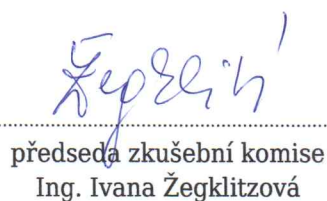 předseda zkušební komise
Ing. Ivana Žegklitzová